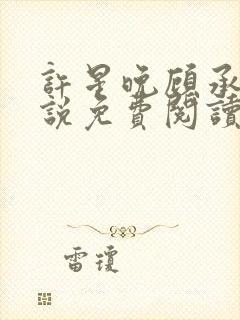 許星晚顧承
說免費閱讀
雷瓊